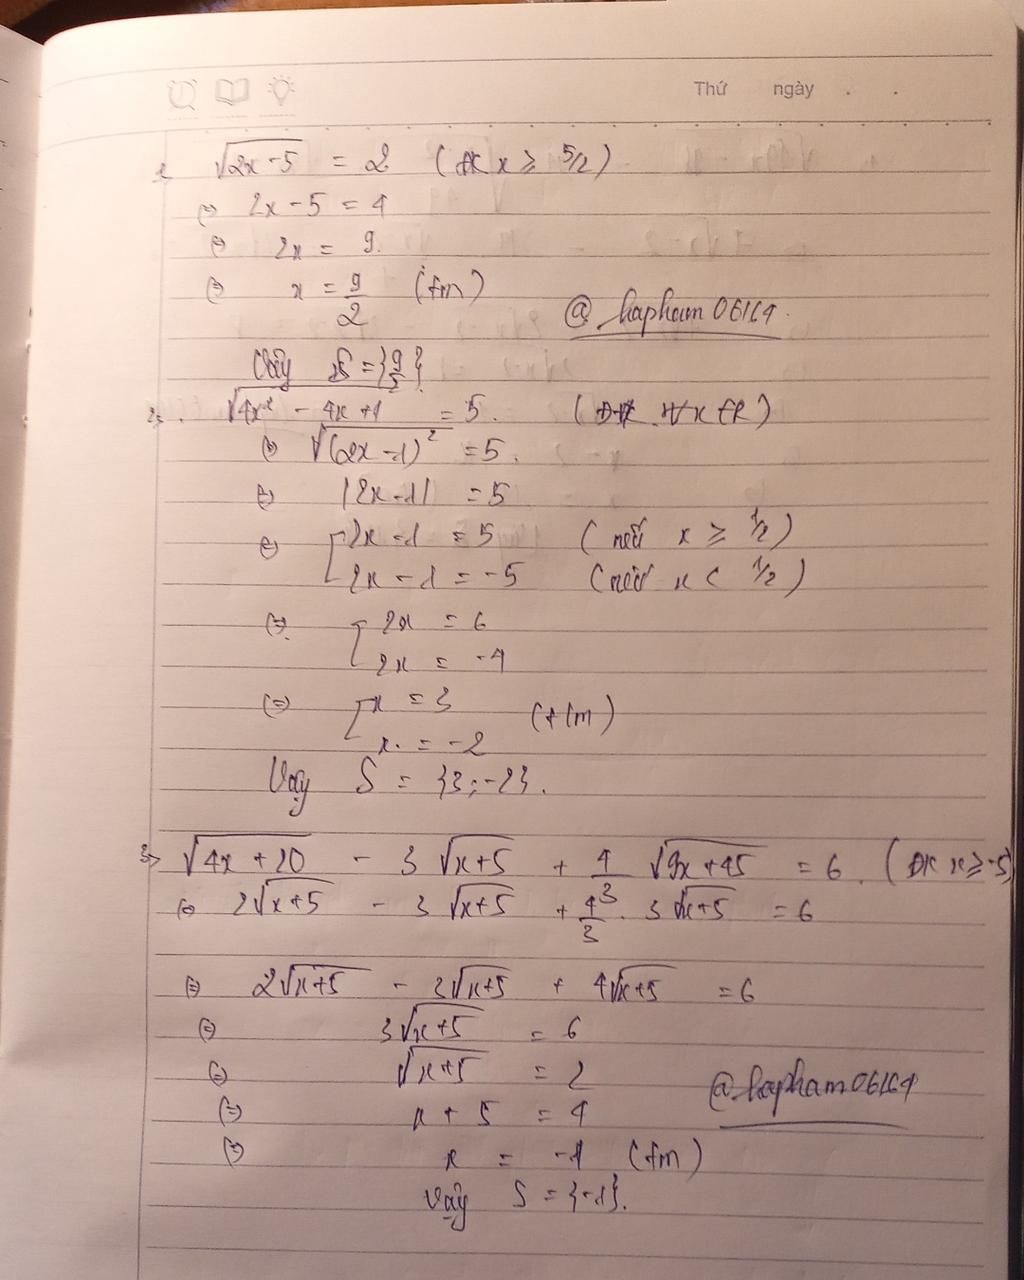 Thứ ngày . .
1, √(2x-5) = 2 (ĐK x ≥ 5/2)
(=) 2x - 5 = 4
(=) 2x = 9.
(=) x = 9/2 (tm)
@hapham06164.
Vậy S = {9/2}
2, √(4x² - 4x + 1) = 5. (ĐK ∀x ∈ R)
(=) √((2x - 1)²) = 5.
(=) |2x - 1| = 5
(=) [ 2x - 1 = 5 (nếu x ≥ 1/2)
2x - 1 = -5 (nếu x < 1/2)
(=) [ 2x = 6
2x = -4
(=) [ x = 3
x. = -2 (t/m)
Vậy S = {3; -2}.
3, √(4x + 20) - 3√(x+5) + 4/3 √(9x + 45) = 6. (ĐK x ≥ -5)
(=) 2√(x+5) - 3√(x+5) + 4/3 . 3√(x+5) = 6
(=) 2√(x+5) - 3√(x+5) + 4√(x+5) = 6
(=) 3√(x+5) = 6
(=) √(x+5) = 2
@hapham06164
(=) x + 5 = 4
(=) x = -1 (tm)
Vậy S = {-1}.